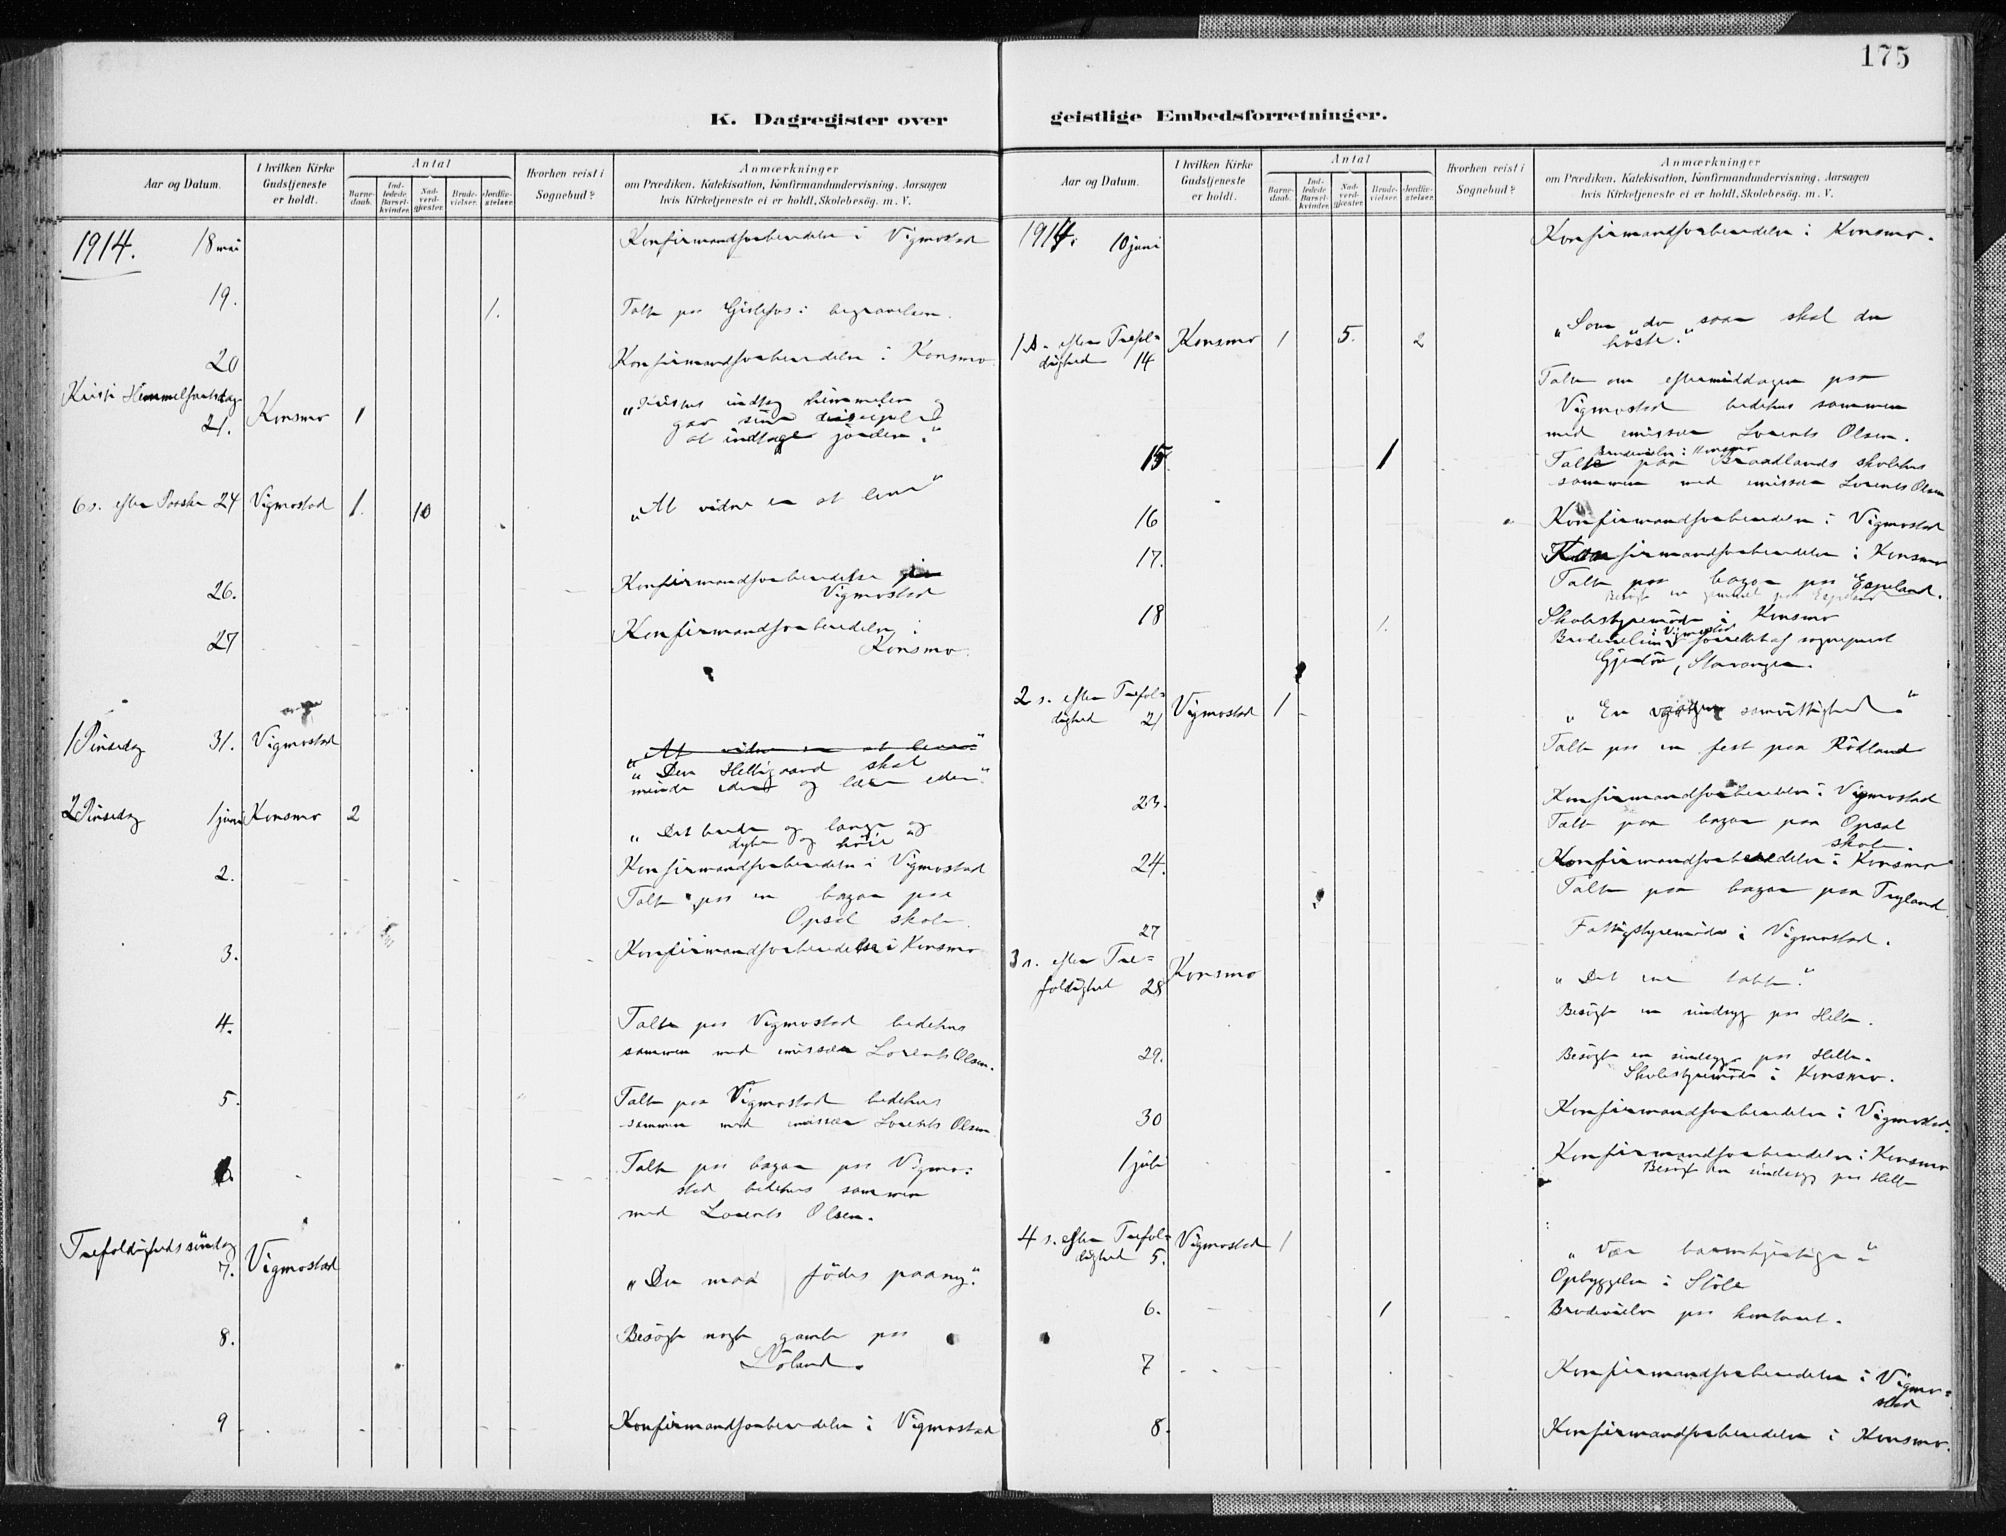 175
K. Dagregister over geistlige Embedsforretninger.
Aar og Datum.
I hvilken Kirke Gudstjeneste er holdt.
Antal
Barnedaab.
Indledede Barselkvinder.
Nadverdgjæster.
Brudevielser.
Jordfæstelser.
Hvorhen reist i Sognebud?
Anmærkninger
om Prædiken, Katekisation, Konfirmandundervisning, Aarsagen
hvis Kirketjeneste ei er holdt, Skolebesøg, m. V.
1914. 18 mai Konfirmandforberedelse i Vigmostad
19. 1. Talte paa begravelsen.
20 Konfirmandforberedelse i Konsmo
Kristi Himmelfartsdag
21. Konsmo 1 „Kristus indtog himmelen og
gav sine disciple
at indtage jorden."
6 s. efter Paaske 24 Vigmostad 1. 10 „At vidne er at leve"
26. Konfirmandforberedelse
Vigmostad
27 Konfirmandforberedelse i
Konsmo.
1 Pinsedag 31. Vigmostad „At vidne er at leve"
„Den Helligaand skal
minde eder og lære eder."
2 Pinsedag 1 juni Konsmo 2 „Det brede og lange og
dybe og høie"
2. Konfirmandforberedelse i Vigmostad
Talte paa en bazar paa
Opsal skole
3. Konfirmandforberedelse i Konsmo
4. Talte paa Vigmostad bedehus
sammen med emissær Lorents Olsen.
5. Talte paa Vigmostad bedehus
sammen med emissær Lorents Olsen
6. Talte paa bazar paa Vigmo=
stad bedehus sammen
med Lorents Olsen.
Trefoldighedssøndag
7. Vigmostad „Du maa fødes paany."
8. Besøgt nogle gamle paa
9 Konfirmandforberedelse i Vigmostad
Aar og Datum.
I hvilken Kirke Gudstjeneste er holdt.
Antal
Barnedaab.
Indledede Barselkvinder.
Nadverdgjæster.
Brudevielser.
Jordfæstelser.
Hvorhen reist i Sognebud?
Anmærkninger
om Prædiken, Katekisation, Konfirmandundervisning, Aarsagen
hvis Kirketjeneste ei er holdt, Skolebesøg, m. V.
1914. 10 juni Konfirmandforberedelse i Konsmo.
1 s. efter Trefol=
dighed 14 Konsmo 1 5. 2 „Som du saar skal du
høste."
Talte om eftermiddagen paa
Vigmostad bedehus sammen
med emissær Lorents Olsen.
15 1 Brudevielse i Konsmo
Talte paa Braadlands skolehus
sammen med emissær Lorents Olsen
16 Konfirmandforberedelse i Vigmostad
17. Konfirmandforberedelse i Konsmo
Talte paa bazar paa Espeland.
Besøgt en gammel paa Espeland
18 1. Skolestyremøde i Konsmo
Brudevielse i Vigmostad forrettet af sogneprest
Stavanger.
2 s. efter Trefol=
dighed 21 Vigmostad 1 „En samvittighed"
Talte paa en fest paa Rødland
23. Konfirmandforberedelse i Vigmostad
Talte paa bazar paa Opsal
skole.
24. Konfirmandforberedelse i Konsmo
Talte paa bazar paa Tryland
27 Fattigstyremøde i Vigmostad.
3 s. efter Tre=
foldighed 28 Konsmo „Det ene tabte."
Besøgt en sindsyg paa Helle.
29. Besøgt en sindsyg paa Helle.
Skolestyremøde i Konsmo.
30 Konfirmandforberedelse i Vigmostad.
1 juli Konfirmandforberedelse i Konsmo
Besøgt en sindsyg paa Helle
4 s. efter Trefol=
dighed 5. Vigmostad 1 „Vær barmhjertige"
Opbyggelse i Støle
6. 1 Brudevielse paa kontoret.
7 Konfirmandforberedelse i Vigmo=
stad
8. Konfirmandforberedelse i Konsmo.